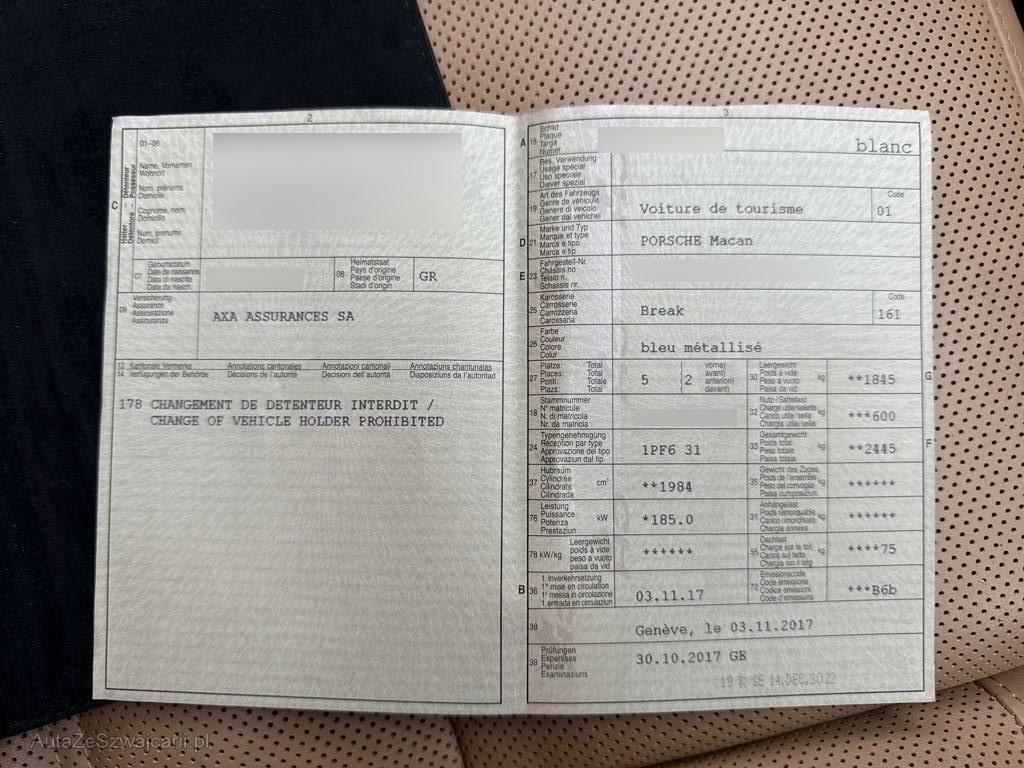 2
01–06
Name, Vornamen
Wohnort
Nom, prénoms
Domicile
Cognome, nomi
Domicilio
Num, prenums
Domicil
C
Halter - Détenteur
Detentore - Possessur
07
Geburtsdatum
Date de naissance
Data di nascita
Data da nasch.
08
Heimatstaat
Pays d'origine
Paese d'origine
Stadi d'origin
GR
09
Versicherung
Assurance
Assicurazione
Assicuranza
AXA ASSURANCES SA
13 Kantonale Vermerke Annotations cantonales Annotazioni cantonali Annotaziuns chantunalas
14 Verfügungen der Behörde Décisions de l'autorité Decisioni dell'autorità Disposiziuns da l'autoritad
178 CHANGEMENT DE DETENTEUR INTERDIT /
CHANGE OF VEHICLE HOLDER PROHIBITED
3
A 15
Schild
Plaque
Targa
Numer
blanc
17
Bes. Verwendung
Usage spécial
Uso speciale
Diever spezial
19
Art des Fahrzeugs
Genre de véhicule
Genere di veicolo
Gener dal vehichel
Voiture de tourisme
Code
01
D 21
Marke und Typ
Marque et type
Marca e tipo
Marca e tip
PORSCHE Macan
E 23
Fahrgestell-Nr.
Châssis no
Telaio n.
Schassis nr.
25
Karosserie
Carrosserie
Carrozzeria
Carossaria
Break
Code
161
26
Farbe
Couleur
Colore
Colur
bleu métallisé
27
Plätze: Total
Places: Total
Posti: Totale
Plazs: Total
5
(2
vorne)
avant)
anteriori)
davant)
30
Leergewicht
Poids à vide
Peso a vuoto
Paisa da vid
kg
**1845
G
18
Stammnummer
N° matricule
N. di matricola
Nr. da matricla
32
Nutz-/Sattellast
Charge utile/sellette
Carico utile/sella
Chargia utila/sella
kg
***600
24
Typengenehmigung
Réception par type
Approvazione del tipo
Approvaziun dal tip
1PF6 31
33
Gesamtgewicht
Poids total
Peso totale
Paisa totala
kg
**2445
F
37
Hubraum
Cylindrée
Cilindrata
Cilindrada
cm³
**1984
35
Gewicht des Zuges
Poids de l'ensemble
Peso del convoglio
Paisa cumposiziun
kg
******
76
Leistung
Puissance
Potenza
Prestaziun
kW
*185.0
31
Anhängelast
Poids remorquable
Carico rimorchiato
Chargia annexa
kg
******
78 kW/kg
Leergewicht
poids à vide
peso a vuoto
paisa da vid
******
55
Dachlast
Charge sur le toit
Carico sul tetto
Chargia sin il tetg
kg
****75
B 36
1. Inverkehrsetzung
1re mise en circulation
1a messa in circolazione
1. entrada en circulaziun
03.11.17
72
Emissionscode
Code émissions
Codice emissioni
Code d'emissiuns
***B6b
38
Genève, le 03.11.2017
39
Prüfungen
Expertises
Perizie
Examinaziuns
30.10.2017 GE
14.DEC.2022
AutaZeSzwajcarii.pl